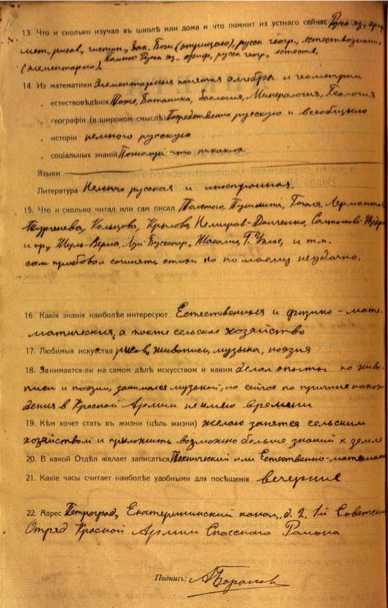 13. Что и сколько изучал въ школѣ или дома и что помнит из устнаго сейчас Русск. яз., ариф
мет., рисов., чистоп., Зак. Бож. (отрицаю), русск. геогр., естествознание
(элементарно), помню Русск. яз., ариф., русск. геогр., естествозн.
14. Из математики Элементарные понятия алгебры и геометрии
„ естествовѣдѣния Тоже, Ботаника, Зоология, Минералогия, Геология
„ географіи (в широком смыслѣ) Посредственно русскую и всеобщую
„ исторіи немного русскую
„ социальных знаній Пожалуй что никаких
Языки
Литература Немного русская и иностранная.
15. Что и сколько читал или сам писал Толстого, Пушкина, Гоголя, Лермонтова
Тургенева, Кольцова, Крылова, Немирова-Данченко, Салтыкова-Щедр.
и др. Жюль-Верна, Луи Буссенар, Г. Уэльс, и т.п.
сам пробовал сочинять стихи но по моему неудачно.
16. Какія знания наиболѣе интересуют Естественныя и физико-мате-
матическия, а также сельское хозяйство
17. Любимыя искусства рисов., живопись, музыка, поэзия
18. Занимается-ли на самом дѣлѣ искусством и каким делал опыты по живо-
писи и поэзии, занимался музыкой, но сейчас по причине нахож-
дения в Красной Армии не имею времени
19. Кѣм хочет стать въ жизни (цѣль жизни) желаю заняться сельским
хозяйством и приложить возможно больше знаний к земле
20. В какой Отдѣл желает записаться Технический или Естественно-математ.
21. Какіе часы считает наиболѣе удобными для посѣщенія вечерние
22. Адрес Петроград, Екатерининский канал, д. 2. 1й Советский
Отряд Красной Армии Спасского Района
Подпись: